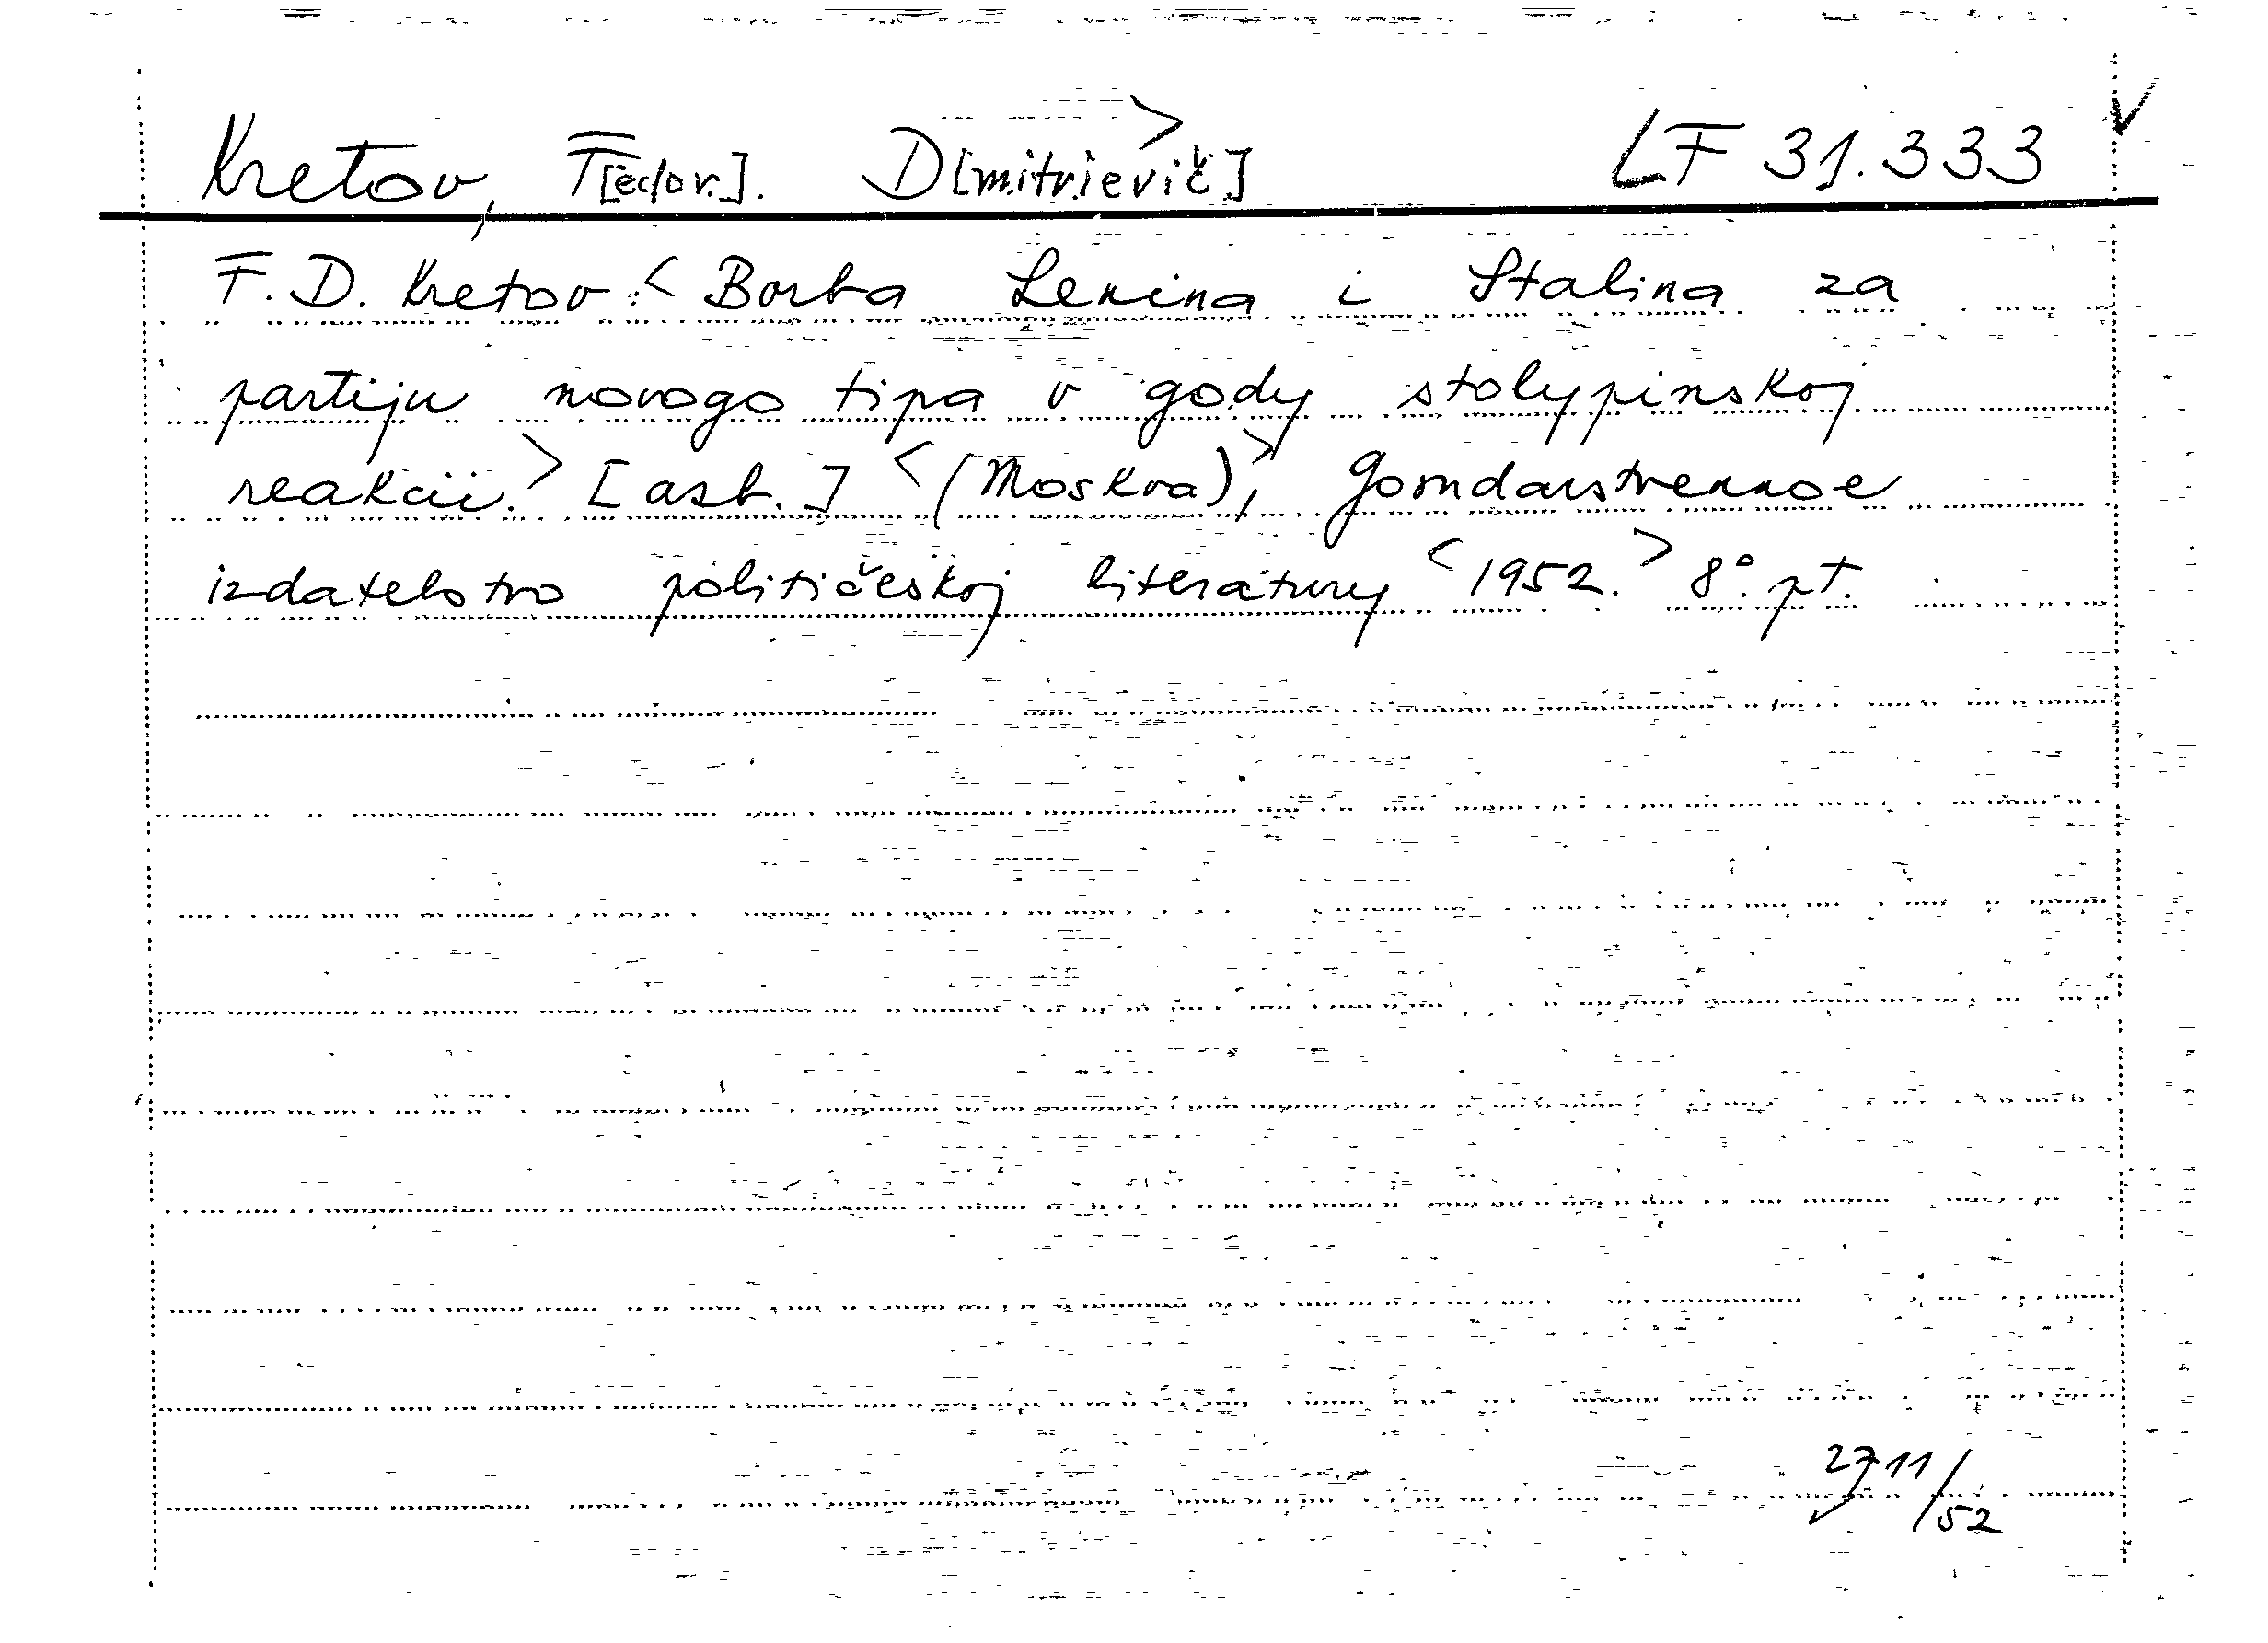 Kretov, F[edor]. D[mitrievič]> LF 31.333 ✓
F. D. Kretov:< Borba Lenina i Stalina za
partiju novogo tipa v gody stolypinskoj
reakcii.> [asb.] <(Moskva),> Gosudarstvennoe
izdatelstvo političeskoj literatury <1952.> 8°. pt.
2711/52